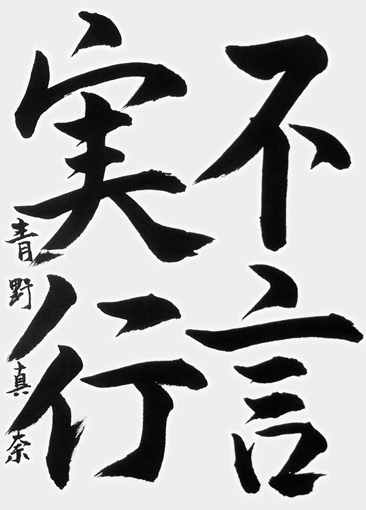 不言
実行
青野真奈